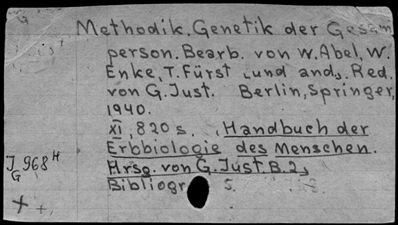 Methodik. Genetik der Gesam
person. Bearb. von W. Abel, W.
Enke, T. Fürst und and. Red.
von G. Just. Berlin, Springer,
1940.
XI, 820 s. Handbuch der
Erbbiologie des Menschen.
Hrsg. von G. Just. B. 2
J 968 H
G
Bibliogr s.